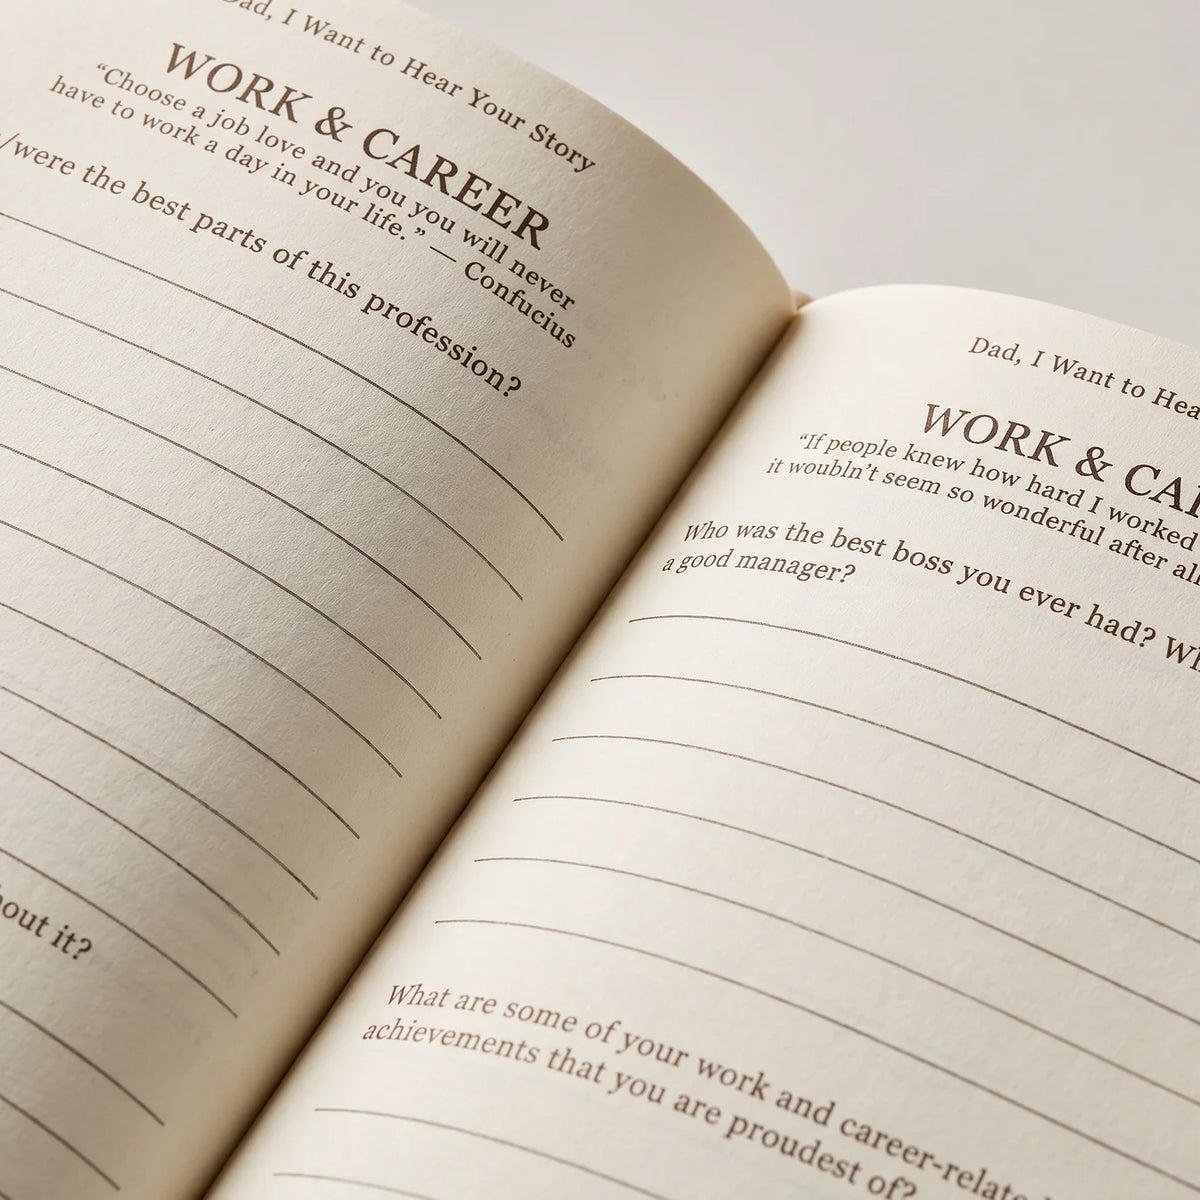 Dad, I Want to Hear Your Story
WORK & CAREER
“Choose a job love and you you will never
have to work a day in your life.” — Confucius
/were the best parts of this profession?
out it?
Dad, I Want to Hea
WORK & CA
“If people knew how hard I worked
it woubln’t seem so wonderful after all
Who was the best boss you ever had? Wh
a good manager?
What are some of your work and career-relate
achievements that you are proudest of?